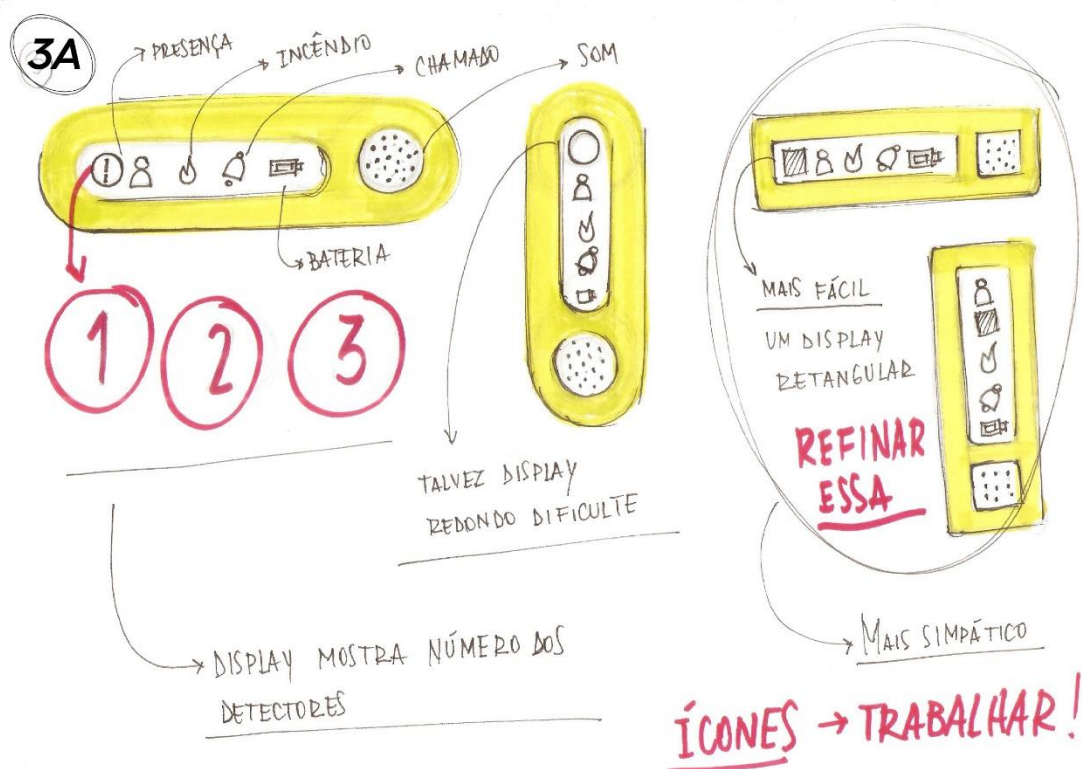 3A
PRESENÇA
INCÊNDIO
CHAMADO
SOM
BATERIA
1 2 3
TALVEZ DISPLAY
REDONDO DIFICULTE
DISPLAY MOSTRA NÚMERO DOS
DETECTORES
MAIS FÁCIL
UM DISPLAY
RETANGULAR
REFINAR
ESSA
MAIS SIMPÁTICO
ÍCONES → TRABALHAR!